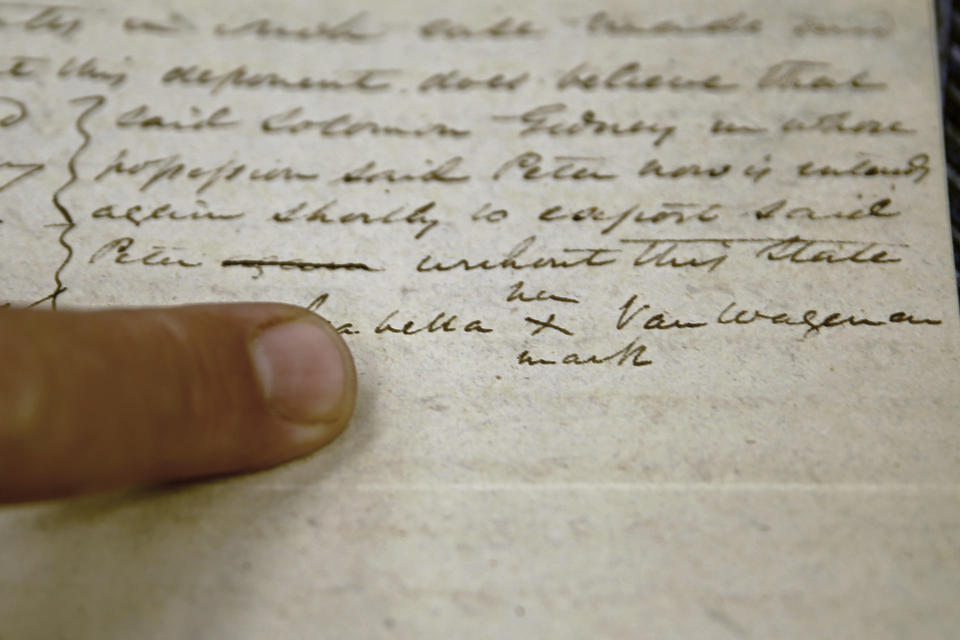 in which case made
this deponent does believe that
said Solomon Gedney in whose
possession said Peter now is intends
again shortly to export said
Peter without this State
her
abella X Van Wagenen
mark